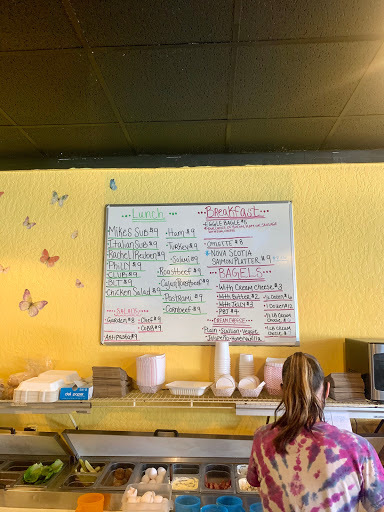 Lunch
Mikes Sub $9
Italian Sub $9
Rachel/Reuben $9
Philly $9
Club $9
BLT $9
Chicken Salad $9
Ham $9
Turkey $9
Salami $9
Roastbeef $9
Cajun Roastbeef $9
Pastrami $9
Cornbeef $9
SALADS
Garden $8
Chef $9
Cobb $9
Antipasta $9
Breakfast
Omlette $8
NOVA SCOTIA
SALMON PLATTER $9
BAGELS
With Cream Cheese $3
With Butter $2
With Jelly $3
PBJ $4
CREAM CHEESE
Plain
Scallion
Veggie
1 Dozen $12
1 LB Cream
Cheese